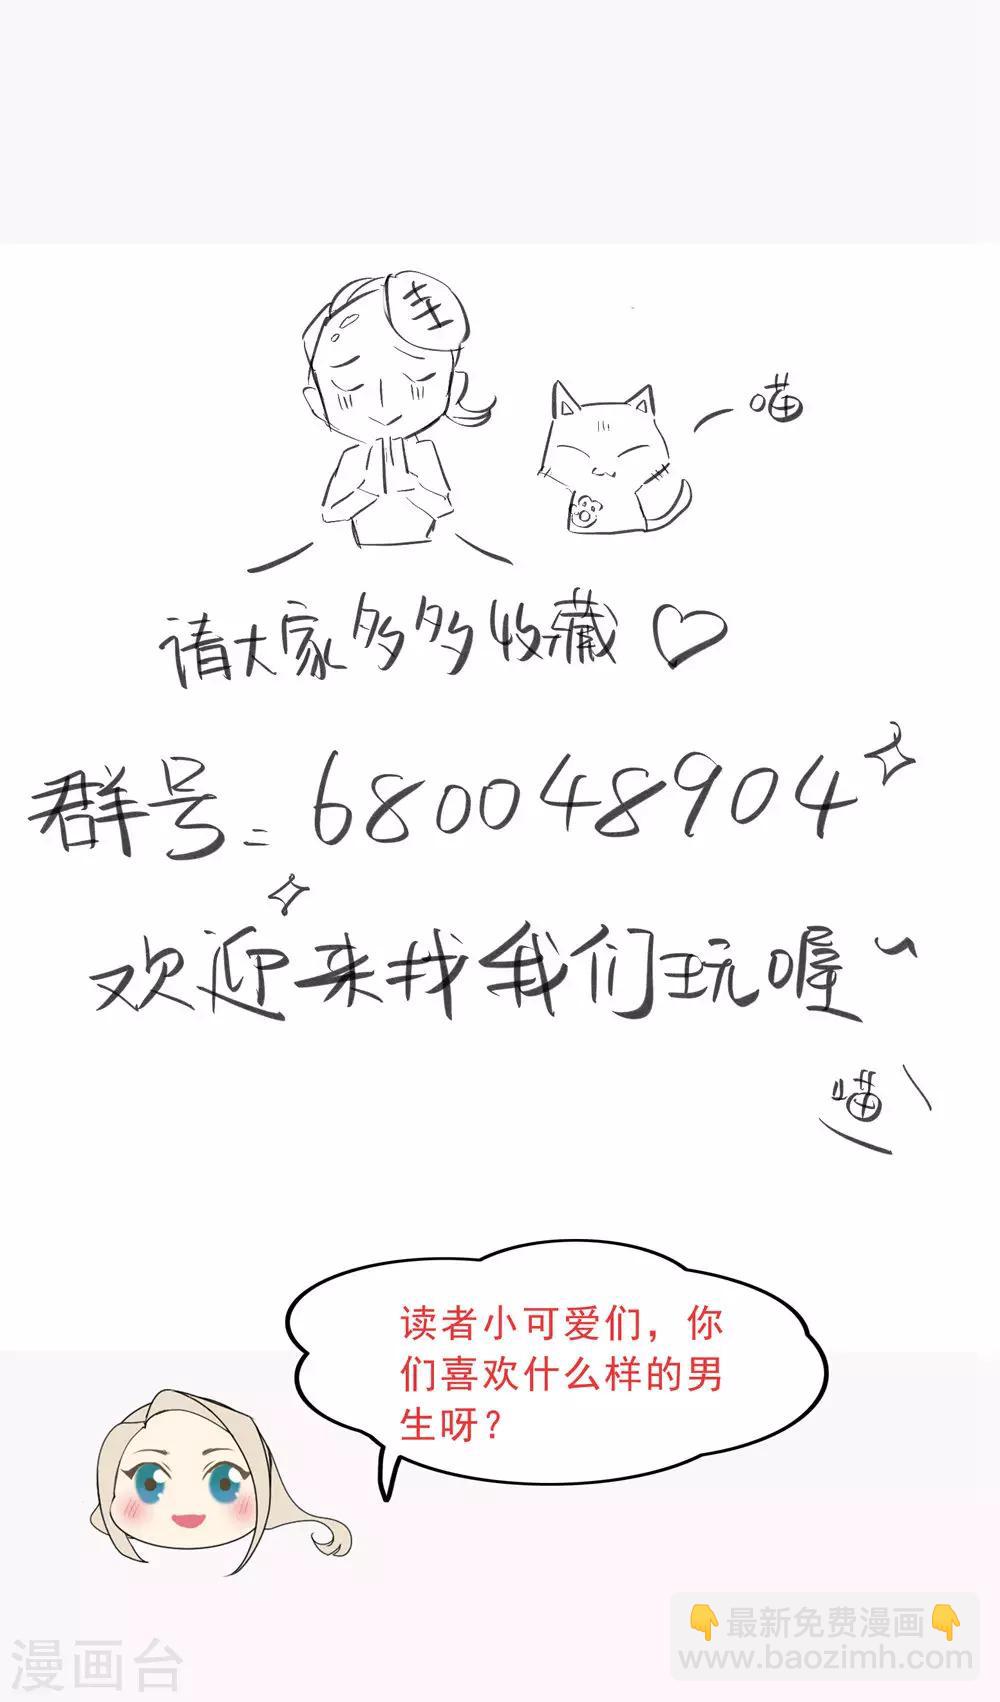 圭
喵
请大家多多收藏♡
群号:680048904
欢迎来找我们玩喔~
喵
读者小可爱们，你
们喜欢什么样的男
生呀？
👇最新免费漫画👇
www.baozimh.com
漫画台